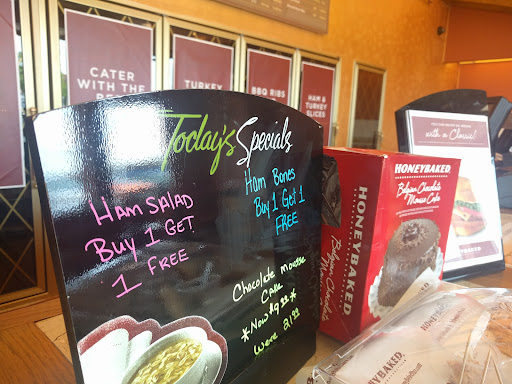 CATER
WITH THE
TURKEY
BBQ RIBS
HAM &
TURKEY
SLICES
Today's Specials
HAM SALAD
BUY 1 GET
1 FREE
Ham Bones
Buy 1 Get 1
FREE
Chocolate Mousse
Cake
*Now $9.99*
Were 21.99
HONEYBAKED
Belgian Chocolate
Mousse Cake
HONEYBAKED
Belgian Chocolate
with a Classic!
HONEYBAKED
HONEYBAKED
HONEYBAKED